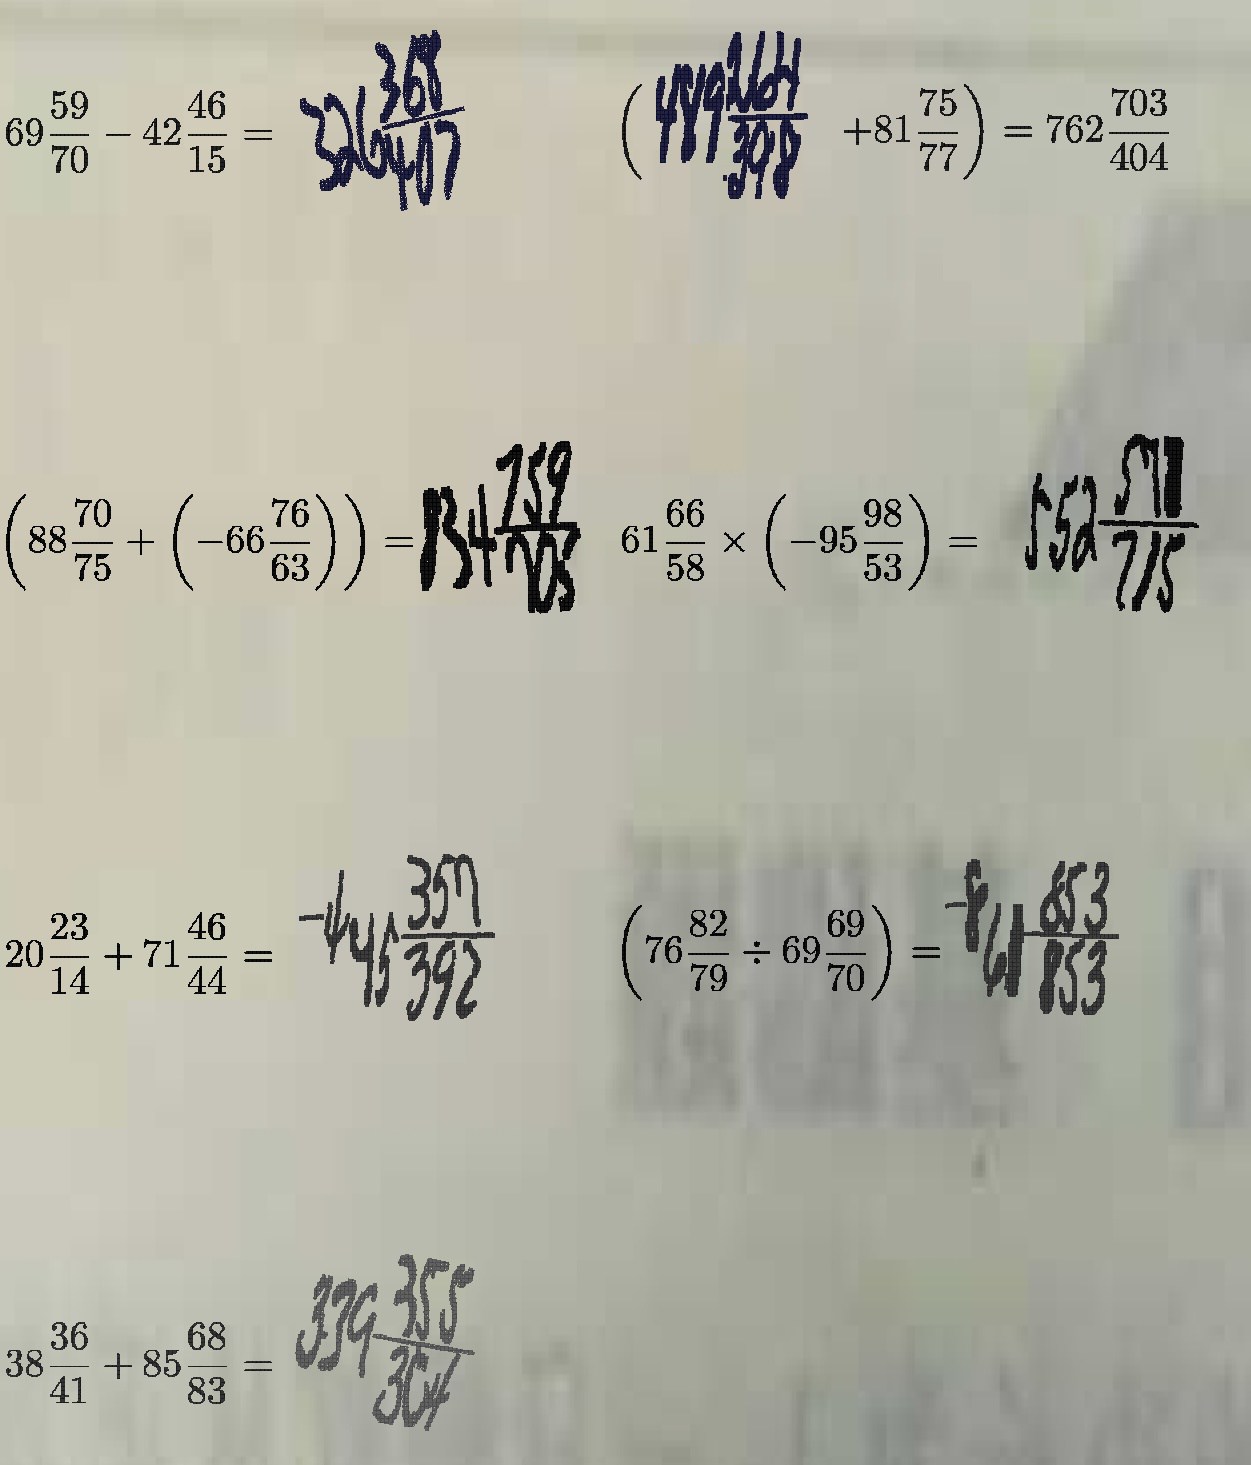 69 59/70 − 42 46/15 = 326 368/407
(489 264/398 +81 75/77) = 762 703/404
(88 70/75 + (−66 76/63)) = 834 759/705
61 66/58 × (−95 98/53) = 552 578/775
20 23/14 + 71 46/44 = −445 357/392
(76 82/79 ÷ 69 69/70) = −861 853/853
38 36/41 + 85 68/83 = 339 355/304